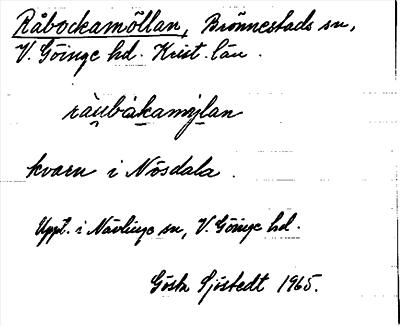 Råbockamöllan, Brönnestads sn,
V. Göinge hd. Krist. län.
kvarn i Nösdala.
Uppt. i Nävlinge sn, V. Göinge hd.
Gösta Sjöstedt 1965.